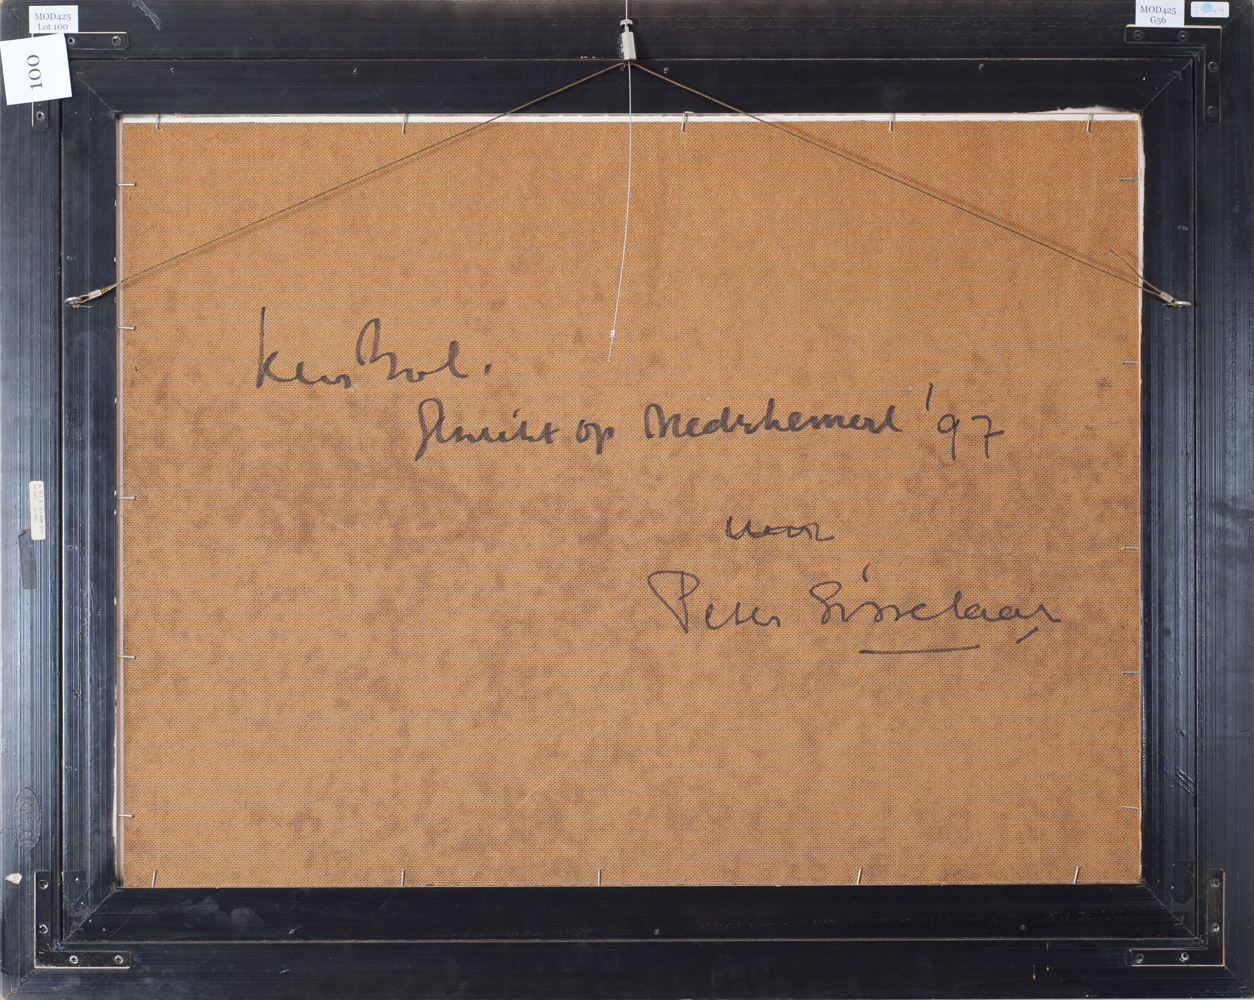 MOD425
Lot 100
MOD425
G56
100
Kees Bol.
Gezicht op Nederhemert '97
voor
Peter Sisselaar